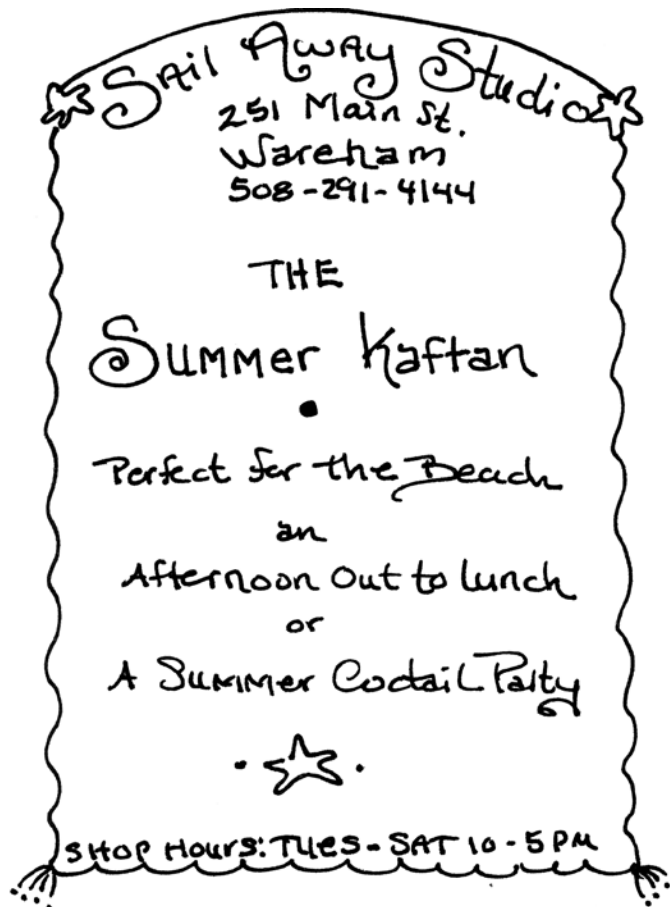 Sail Away Studio
251 Main St.
Wareham
508-291-4144
THE
Summer Kaftan
Perfect for the Beach
an
Afternoon Out to Lunch
or
A Summer Coctail Party
SHOP HOURS: TUES - SAT 10 - 5 PM